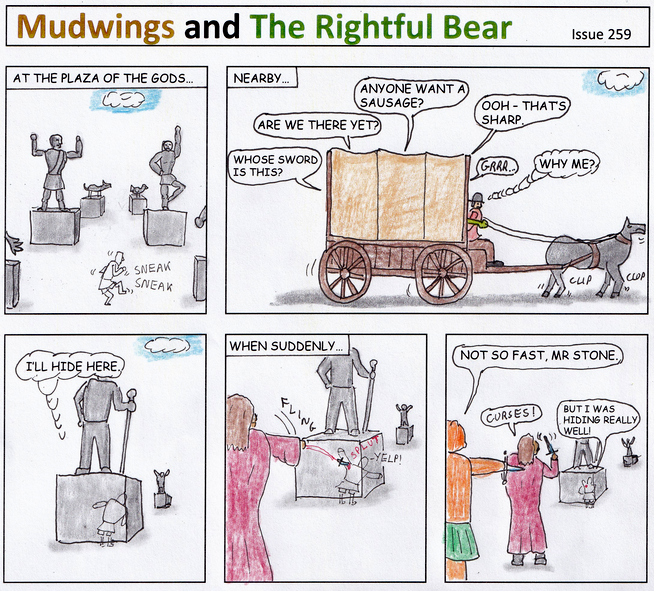 Mudwings and The Rightful Bear
Issue 259
AT THE PLAZA OF THE GODS...
SNEAK
SNEAK
NEARBY...
WHOSE SWORD
IS THIS?
ARE WE THERE YET?
ANYONE WANT A
SAUSAGE?
OOH - THAT'S
SHARP.
GRRR...
WHY ME?
CLIP
CLOP
I'LL HIDE HERE.
WHEN SUDDENLY...
FLING
SPLUT
YELP!
NOT SO FAST, MR STONE.
CURSES!
BUT I WAS
HIDING REALLY
WELL!